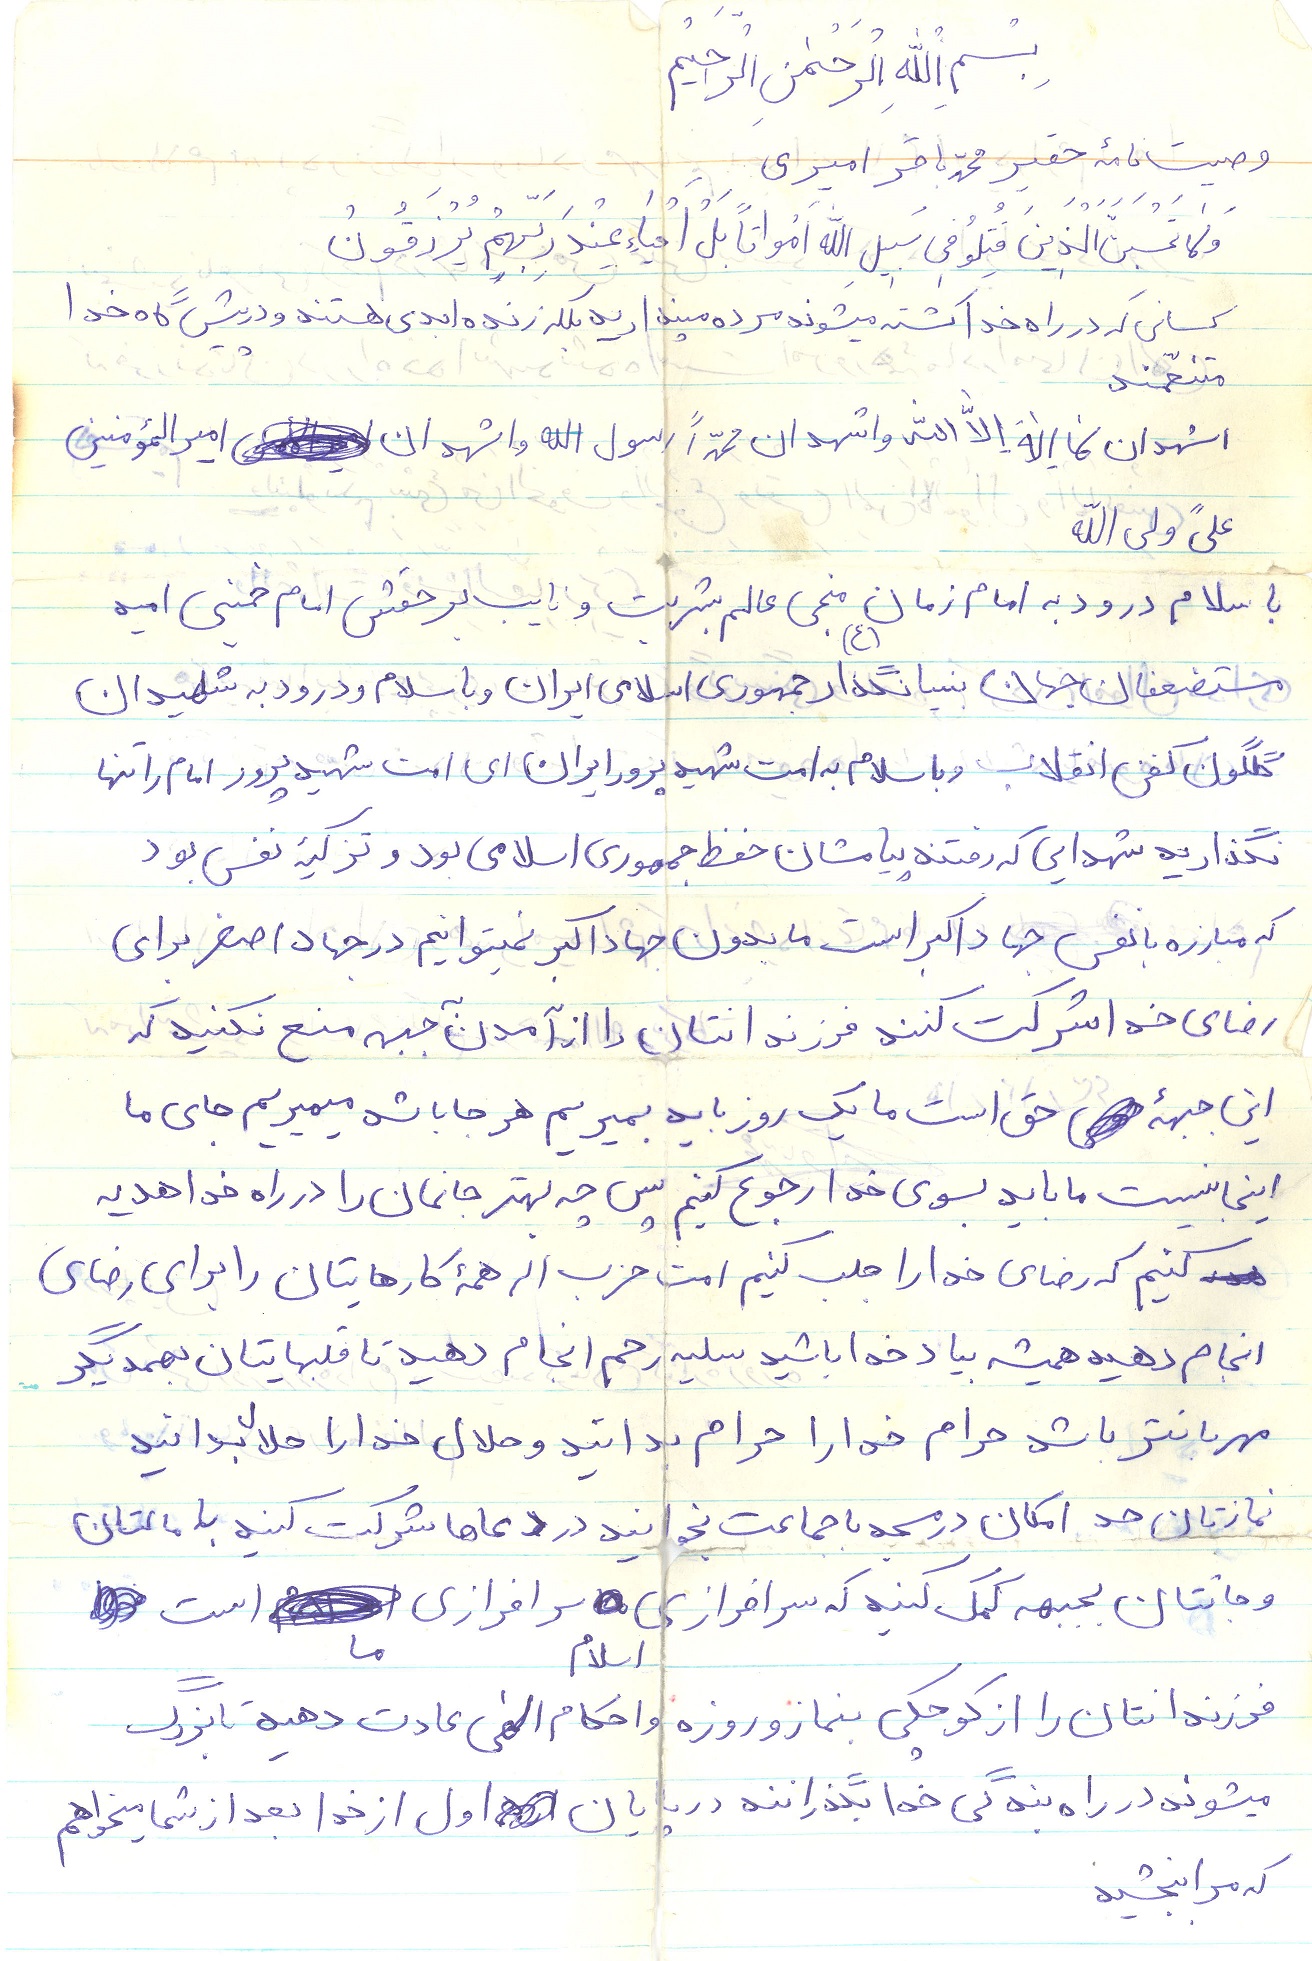 بِسْمِ اللهِ الرَّحْمٰنِ الرَّحِیْمِ
وصیتنامهٔ حقیر محمّد باقر امیری
وَلَا تَحْسَبَنَّ الَّذِینَ قُتِلُو فِی سَبِیلِ اللهِ اَمْواتاً بَلْ اَحْیاءِ عِنْدَ رَبِّهِمْ یُرْزَقُونْ
کسانی که در راه خدا کشته میشوند مرده مپندارید بلکه زنده ابدی هستند و در پیش گاه خدا
متنعّمند
اشهد ان لا اِلٰهَ اِلاَّ الله و اشهد ان محمّداً رسول الله و اشهد ان امیر المؤمنین
علیً ولی الله
با سلام درود به امام زمان (ع) منجی عالم بشریت و نایب بر حقش امام خمینی امید
مستضعفان جهان بنیانگذار جمهوری اسلامی ایران و با سلام و درود به شهیدان
گلگون کفن انقلاب و با سلام به امت شهید پرور ایران ای امت شهید پرور امام را تنها
نگذارید شهدایی که رفتند پیامشان حفظ جمهوری اسلامی بود و تزکیهٔ نفس بود
که مبارزه با نفس جهاد اکبر است ما بدون جهاد اکبر نمیتوانیم در جهاد اصغر برای
رضای خدا شرکت کنند فرزندانتان را از آمدن جبهه منع نکنید که
این جبههٔ حق است ما یک روز باید بمیریم هر جا باشد میمیریم جای ما
اینجا نیست ما باید بسوی خدا رجوع کنیم پس چه بهتر جانمان را در راه خدا هدیه
کنیم که رضای خدا را جلب کنیم امت حزب اله همهٔ کارهایتان را برای رضای
انجام دهید همیشه بیاد خدا باشید سلیه رحم انجام دهید تا قلبهایتان بهمدیگر
مهربانتر باشد حرام خدا را حرام بدانید و حلال خدا را حلال بدانید
نمازتان حد امکان در مسجد با جماعت بخوانید در دعاها شرکت کنید با مالتان
و جانتان بجبهه کمک کنید که سرافرازی اسلام سرافرازی ما است
فرزندانتان را از کوچکی بنماز و روزه و احکام الهی عادت دهید تا بزرگ
میشوند در راه بندگی خدا بگذرانند در پایان اول از خدا بعد از شما میخواهم
که مرا ببخشید